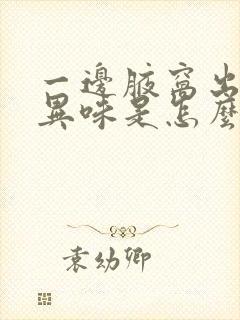 一邊腋窩出
異味是怎麼
袁幼卿